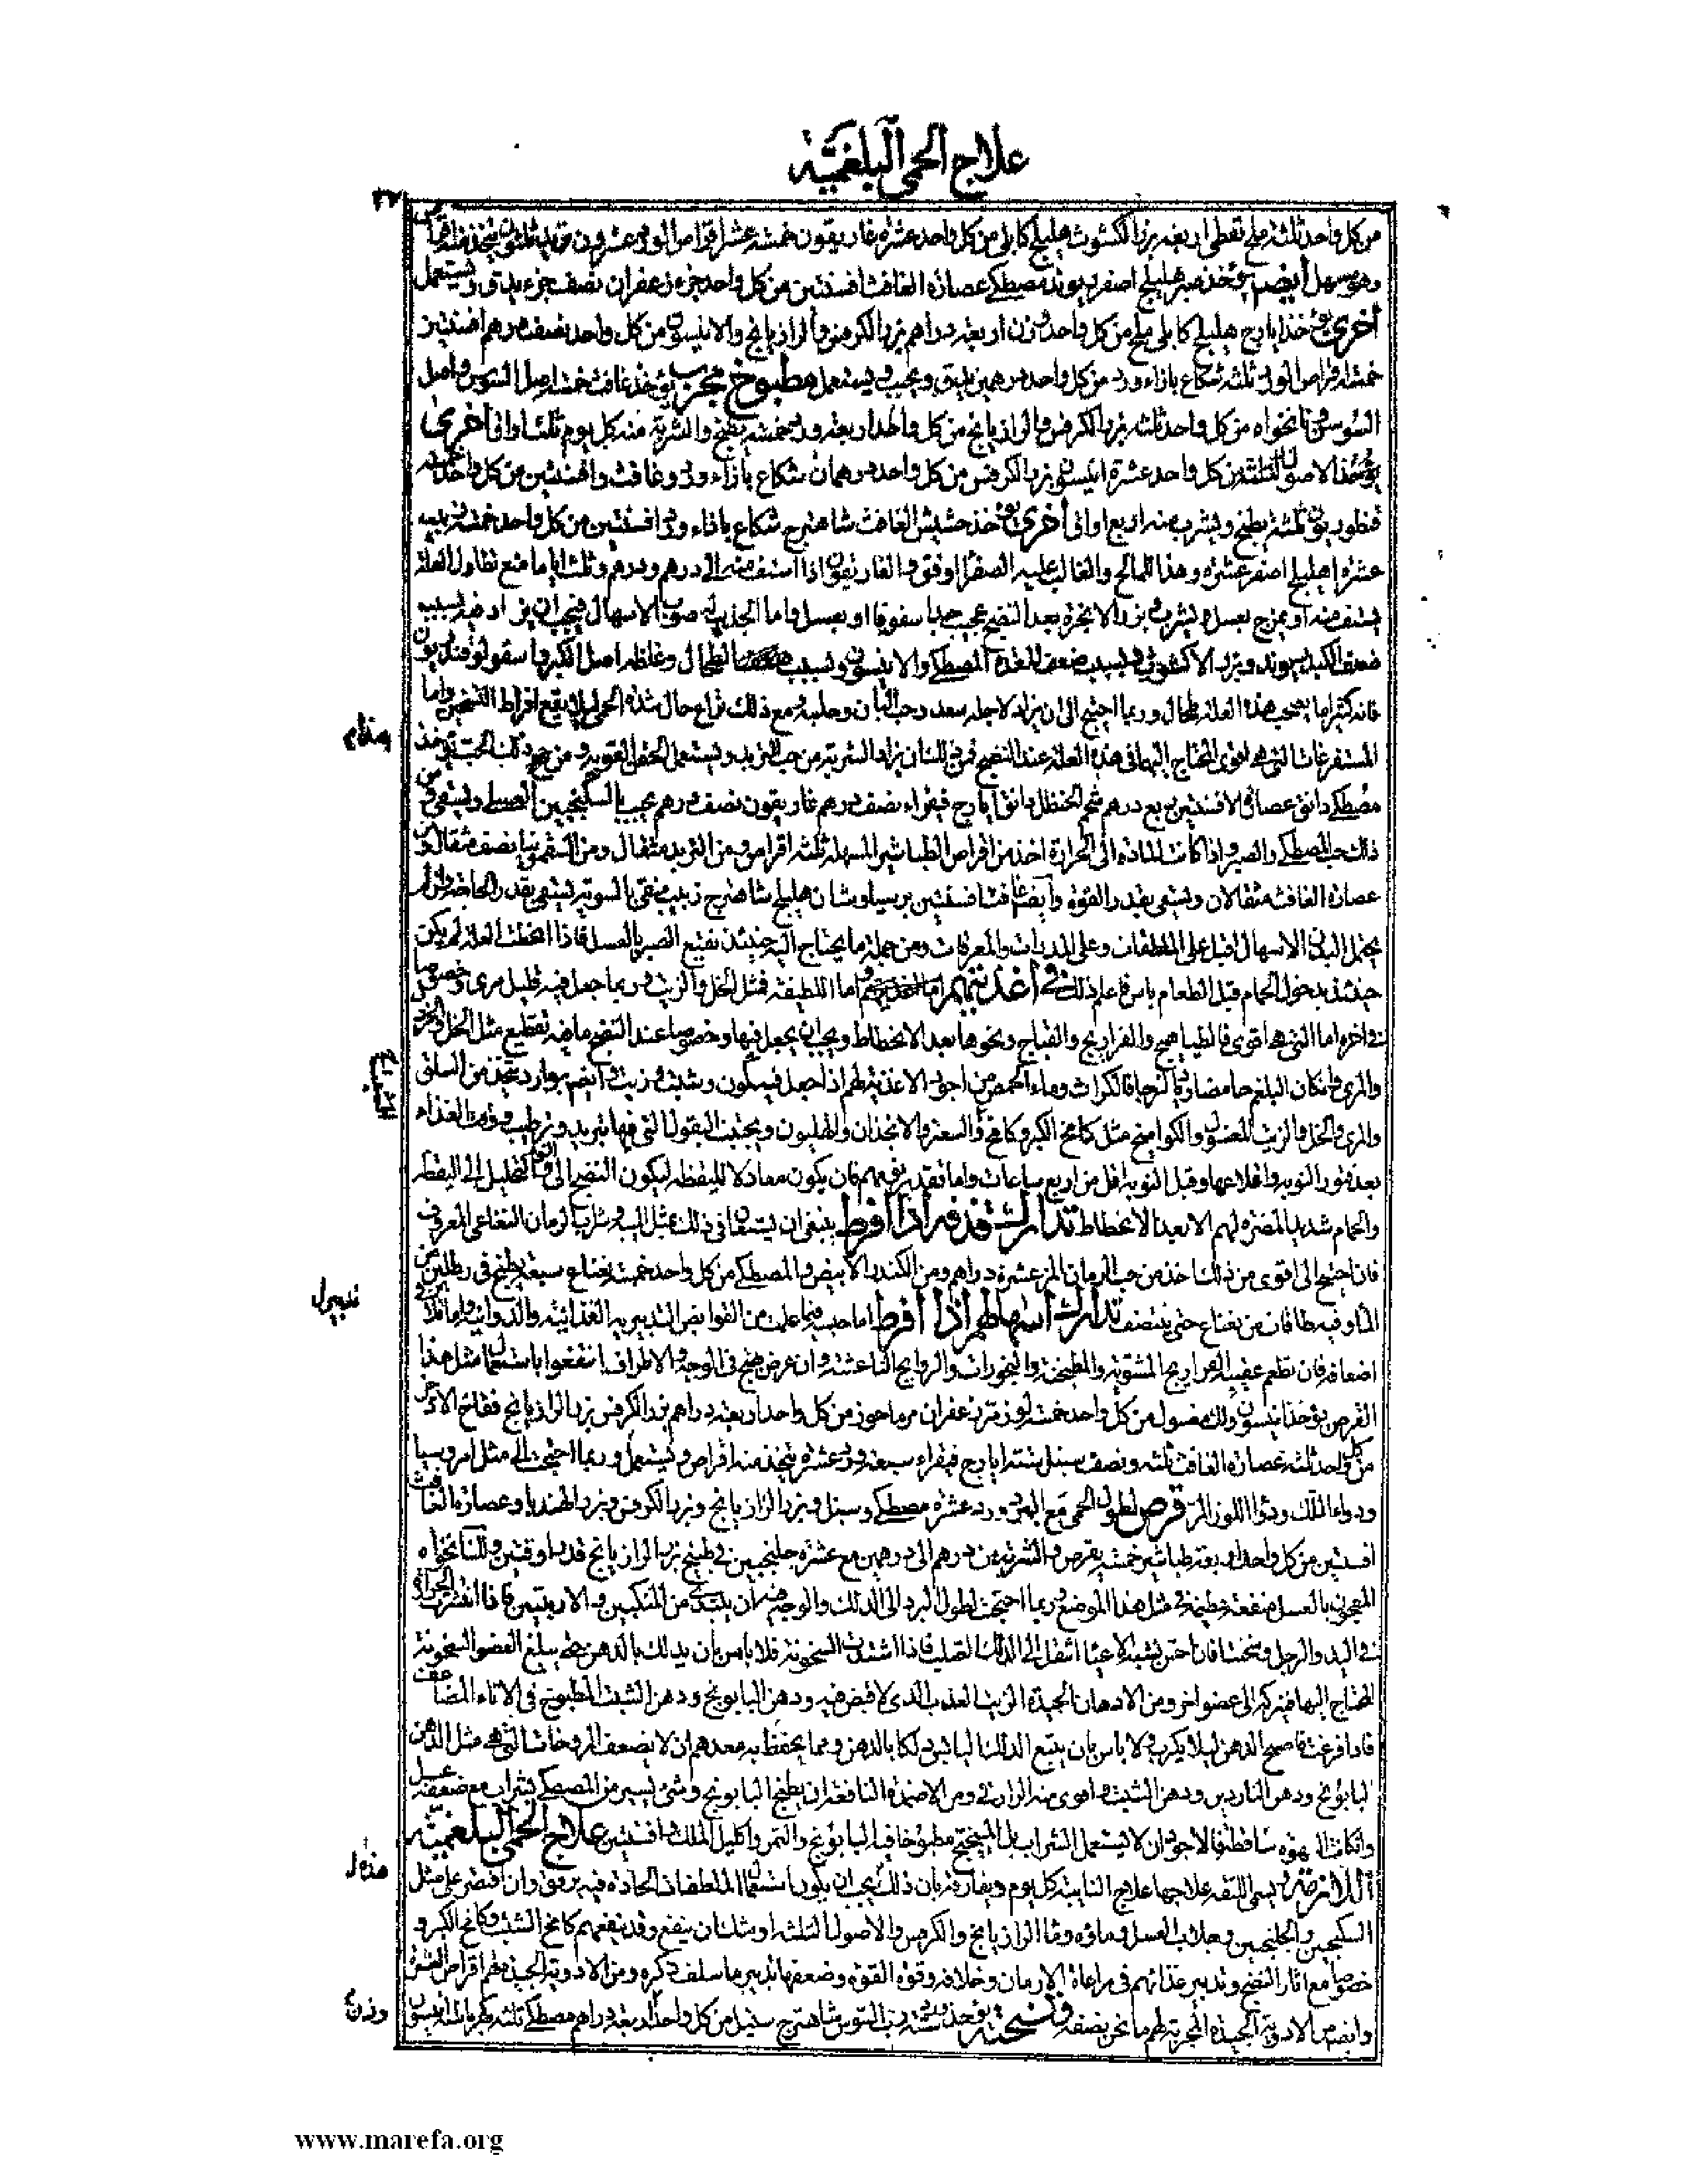 علاج الحمى البلغمية
٣٧
من كل واحد ثلثه ملح نفطى اربعه بزر الكشوث هليلج كابلى من كل واحد عشره غاريقون خمسه عشر اقراص الورد عشرون تربد ثلثون يتخذ منه اقراص
وهو مسهل ايضا يؤخذ صبر هليلج اصفر ريوند مصطكى عصارة الغافث افسنتين من كل واحد جزء زعفران نصف جزء يدق ويستعمل
اخرى يؤخذ ايارج هليلج كابلى ملح من كل واحد وزن اربعه دراهم بزر الكرفس والرازيانج والانيسون من كل واحد نصف درهم افسنتين
خمسه اقراص الورد ثلثه شكاع باذاورد من كل واحد درهمين يدق ويحبب ويستعمل مطبوخ مجرب يؤخذ غافث خمسه اصل السوس واصل
السوسن نانخواه من كل واحد ثلثه بزر الكرفس والرازيانج من كل واحد اربعه ورد خمسه يطبخ والشربة منه كل يوم ثلث اواقى اخرى
يؤخذ الاصول الثلثه من كل واحد عشره انيسون بزر الكرفس من كل واحد درهمان شكاع باذاورد وغافث وافسنتين من كل واحد خمسه
قنطوريون ثلثه يطبخ ويشرب منه اربع اواقى اخرى يؤخذ حشيش الغافث شاهترج شكاع باذاورد افسنتين من كل واحد خمسه زبيب
عشره اهليلج اصفر عشره وهذا للمالح والغالب عليه الصفراء اوفق والغاريقون اذا استف منه الى درهم ودرهم وثلث اياما منع تطاول العلة
يستف منه او يمزج بعسل ويشرب بزر الانجرة بعد النضج عجيب جدا سفوفا او بعسل واما الجذب الى صوب الاسهال فيجب ان يزاد فيه لسبب
ضعف الكبد ريوند وبزر الاكشوث ولسبب ضعف المعدة المصطكى والانيسون ولسبب الطحال وغلظه اصل الكبر واسقولوقندريون
فانه كثيرا ما يصحب هذه العلة طحال وربما احتيج الى ان يزاد لاجله سعد وحب البان وحلبة ومع ذلك تراع حال شدة الحمى لئلا يقع افراط التسخين واما
المستفرغات التى هى اقوى المحتاج اليها فى هذه العلة عند النضج فمن ذلك ان يزاد الشربة من حب التربد ويستعمل الحقن القوية ومن جيد ذلك الحب يؤخذ
مصطكى دانق عصارة الافسنتين ربع درهم شحم الحنظل دانق ايارج فيقراء نصف درهم غاريقون نصف درهم يحبب بالسكنجبين العسلى ويستقى من
ذلك حب المصطكى والصبر واذا كانت المادة الى الحرارة اخذ من اقراص الطباشير المسهلة ثلثه اقراص ومن التربد مثقال ومن السقمونيا نصف مثقال ومن
عصارة الغافث مثقالان ويستقى بقدر القوة وايضا غافث افسنتين برسياوشان هليلج شاهترج زبيب منقى بالسوية يستقى بقدر الحاجة وان لم
يحتمل البدن الاسهال اقبل على الملطفات وعلى المدرات والمعرقات ومن جملة ما يحتاج اليه حينئذ نقيع الصبر بالعسل فاذا انحطت العلة لم يكن
حينئذ بدخول الحمام قبل الطعام باس فاعلم ذلك فى اغذيتهم اما اللطيفة فمثل الخل والزيت وربما جعل فيه قليل مرى وخصوصا
فى اخره اما التى هى اقوى فالطياهيج والفراريج والقباج ونحوها بعد الانحطاط ويجب ان يجعل فيها وخصوصا عند النضج ما فيه تقطيع مثل الخل والخردل
والمرى وان كان البلغم حامضا فالكراث وماء الحمص من اجود الاغذية لهم اذا جعل فيه كمون وشبث وزيت وايضا بوارد تتخذ من السلق
والمرى والخل والزيت المغسول والكواميخ مثل كامخ الكبر وكامخ السعتر والانجذان والهليون ويجتنب البقول التى فيها تبريد وترطيب ووقت الغذاء
بعد فتور النوبة واقلاعها وقبل النوبة اقل من اربع ساعات واما تقدير نومهم فان يكون معادلا لليقظة ليكون النضج الى النوم والتحليل الى اليقظة
والحمام شديد المضرة لهم الا بعد الانحطاط تدارك قذفه اذا افرط ينبغى ان يستعان فى ذلك بمثل الميبه وشراب الرمان النعناعى المعروف
فان احتيج الى اقوى من ذلك اخذ من حب الرمان المز عشره دراهم ومن الكندر الابيض والمصطكى من كل واحد خمسه نعناع سبعه يطبخ فى رطلين من
الماء وفيه طاقات من نعناع حتى ينتصف تدارك اسهالهم اذا افرط اما حبسه فبما علمت من القوابض التدبيرية الغذائية والدوائية واما تدبير
اضعافه فان تطعم عقيبه الفراريج المشوية والمطبخة والبخورات والروايح الناعشة وان عرض تهيج فى الوجه والاطراف انتفعوا باستعمال مثل هذا
القرص يؤخذ انيسون ولك مغسول من كل واحد خمسه لوز مر زعفران مرماحوز من كل واحد اربعه دراهم بزر الكرفس بزر الرازيانج فقاح الاذخر
من كل واحد ثلثه عصارة الغافث ثلثه ونصف سنبل سته ايارج فيقراء سبعه ورد عشره يتخذ منه اقراص ويستعمل وربما احتيج الى مثل امروسيا
ودواء الملك ودواء اللوز المر قرص لطول الحمى مع البرد ورد عشره مصطكى وسنبل وبزر الرازيانج وبزر الكرفس وبزر الهندبا وعصارة الغافث
افسنتين من كل واحد اربعه طباشير خمسه يقرص والشربة من درهم الى درهمين مع عشره جلنجبين فى طبيخ بزر الرازيانج قدر اوقيتين وللنانخواه
المعجون بالعسل منفعة عظيمة فى مثل هذا الموضع وربما احتجت لطول البرد الى الدلك والوجه فيه ان يبتدئ من المنكبين والاربيتين فاذا انتشرت الحرارة
فى اليد والرجل وسخنت فان احس بشبه الاعيا انتقل الى الدلك الصلب فاذا اشتدت السخونة فلا باس بان يدلك بالدهن حتى يبلغ العضو السخونة
المحتاج اليها فيتركه الى عضو اخر ومن الادهان الجيدة الزيت العذب الذى لا قبض فيه ودهن البابونج ودهن الشبث المطبوخ فى الاناء المضاعف
فاذا فرغت فامسح الدهن لئلا يكرب ولا باس بان يتبع الدلك اليابس دلكا بالدهن ومما يحفظ به معدهم ان لا يضعف المروخات التى هى مثل الدهن
البابونج ودهن الناردين ودهن الشبث واقوى منه الرازقى ومن الاضمدة النافعة ان يطبخ البابونج وشئ يسير من المصطكى بشراب مع ضعفه عسل
وان كانت الشهوة ساقطة فالاجود ان لا يستعمل الشراب بل الميبختج مطبوخا فيه البابونج والتمر واكليل الملك وافسنتين علاج الحمى البلغمية
اللازمة وتسمى اللثقه علاجها علاج النايبة كل يوم ويفارقه بان ذلك يجب ان يكون استعمال الملطفات الحادة فيه برفق وان اقتصر على مثل
السكنجبين والجلنجبين وجلاب العسل وماؤه وماء الرازيانج والكرفس والاصول الثلثه او مثلثان ينفع وقد ينفعهم كامخ الشبث وكامخ الكبر و
خصوصا مع اثار النضج وتدبير غذائهم فى مراعاة الازمان وخلافه وقوة القوة وضعفها تدبير ما سلف ذكره ومن الادوية الجيدة لهم اقراص العشره
وايضا من الادوية الجيدة المجربة لهم ما نحن نصفه ونسخته يؤخذ ورد سته رب السوس شاهترج سنبل من كل واحد اربعه دراهم مصطكى ثلثه كهربا ثلثه انيسون
تدبير
هذه ل
وزن
www.marefa.org